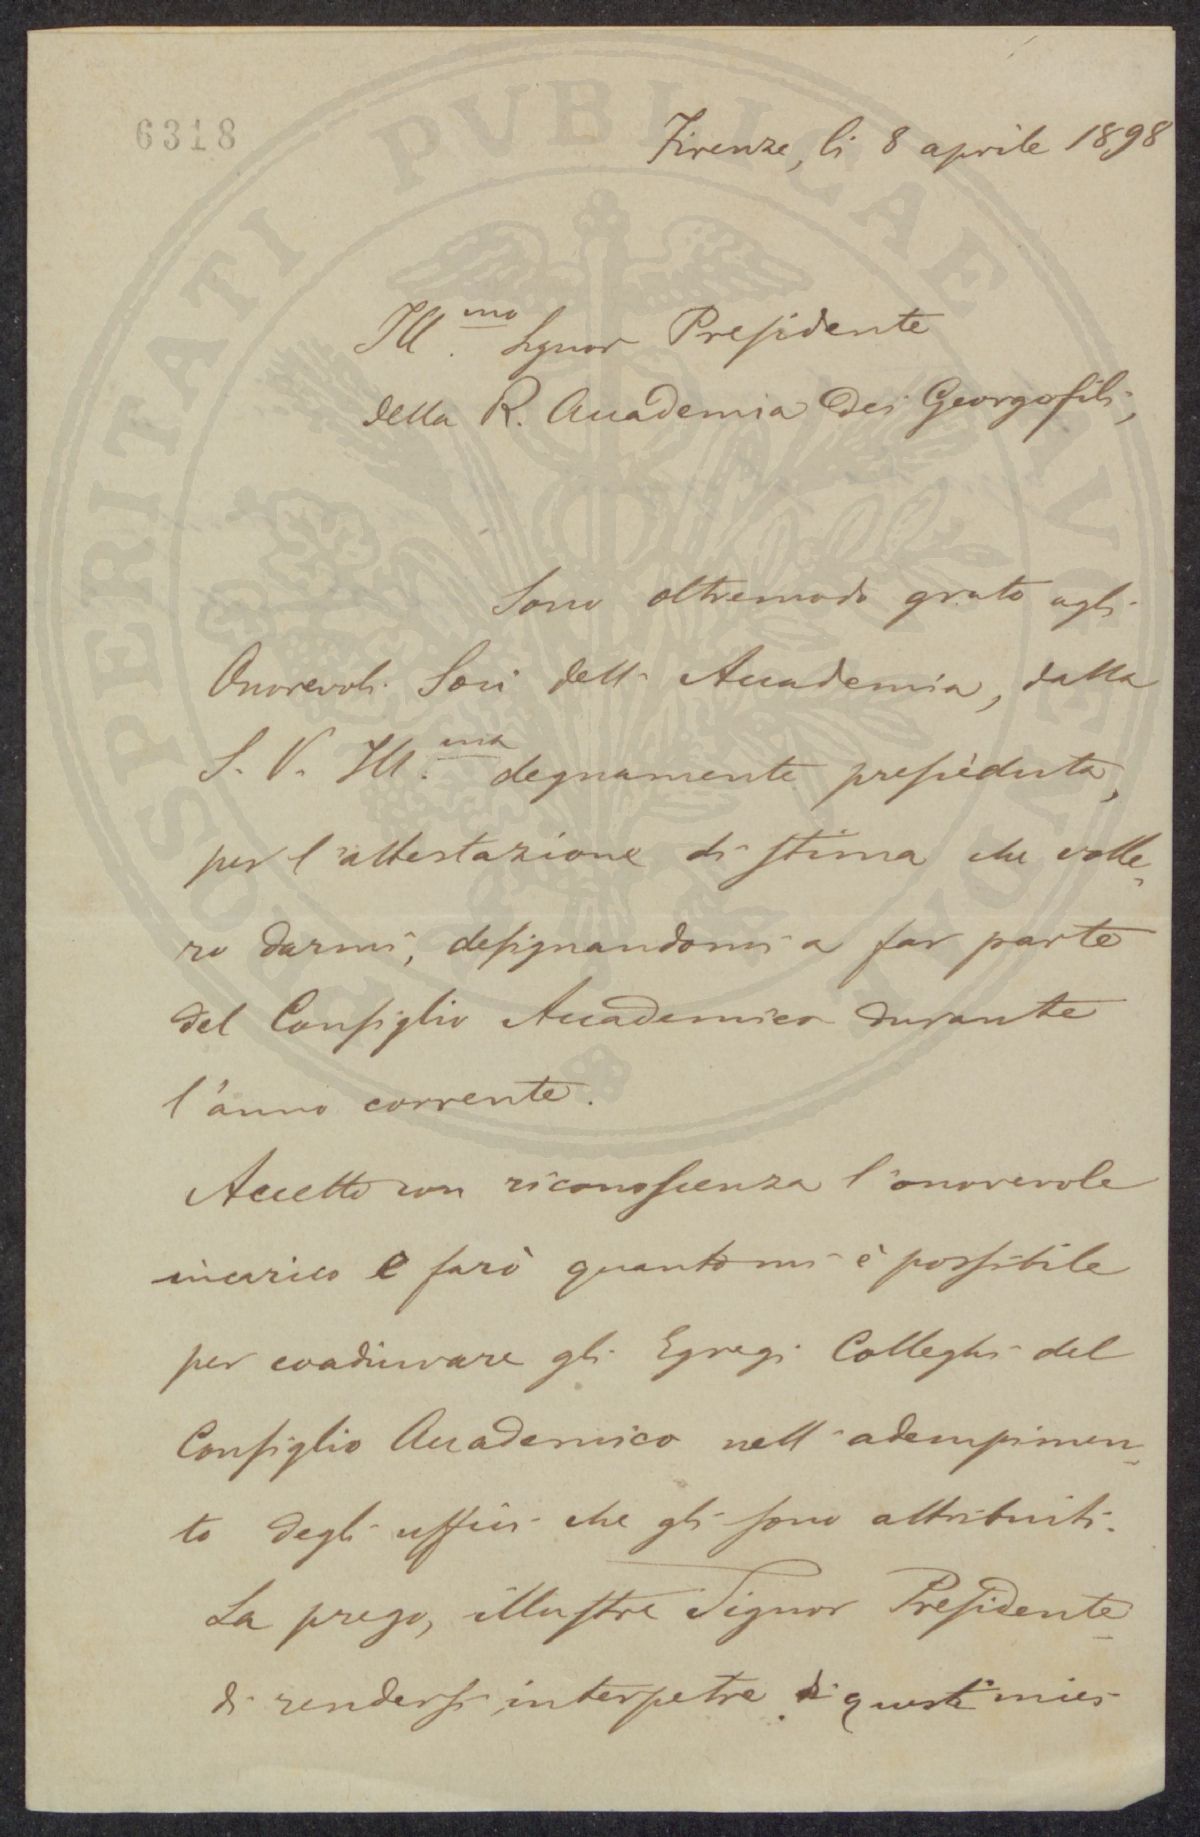 6318
Firenze, li 8 aprile 1898
Ill.mo Signor Presidente
della R. Accademia dei Georgofili,
Sono oltremodo grato agli
Onorevoli Soci dell'Accademia, dalla
S. V. Ill.ma degnamente presieduta,
per l'attestazione di stima che volle-
ro darmi, designandomi a far parte
del Consiglio Accademico durante
l'anno corrente.
Accetto con riconoscenza l'onorevole
incarico e farò quanto mi è possibile
per coadiuvare gli Egregi Colleghi del
Consiglio Accademico nell'adempimen-
to degli uffici che gli sono attribuiti.
La prego, illustre Signor Presidente
di rendersi interpetre di questi miei
PROSPERITATI PVBLICAE AVGENDAE